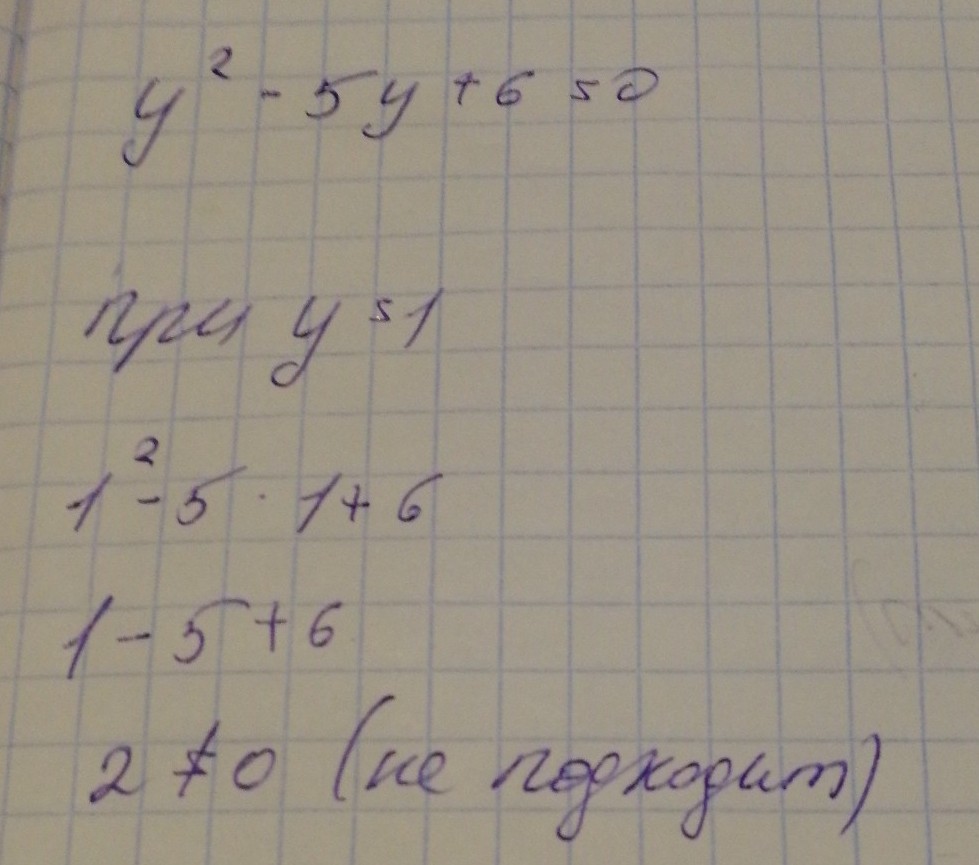 y² - 5y + 6 = 0
при y = 1
1² - 5 · 1 + 6
1 - 5 + 6
2 ≠ 0 (не подходит)